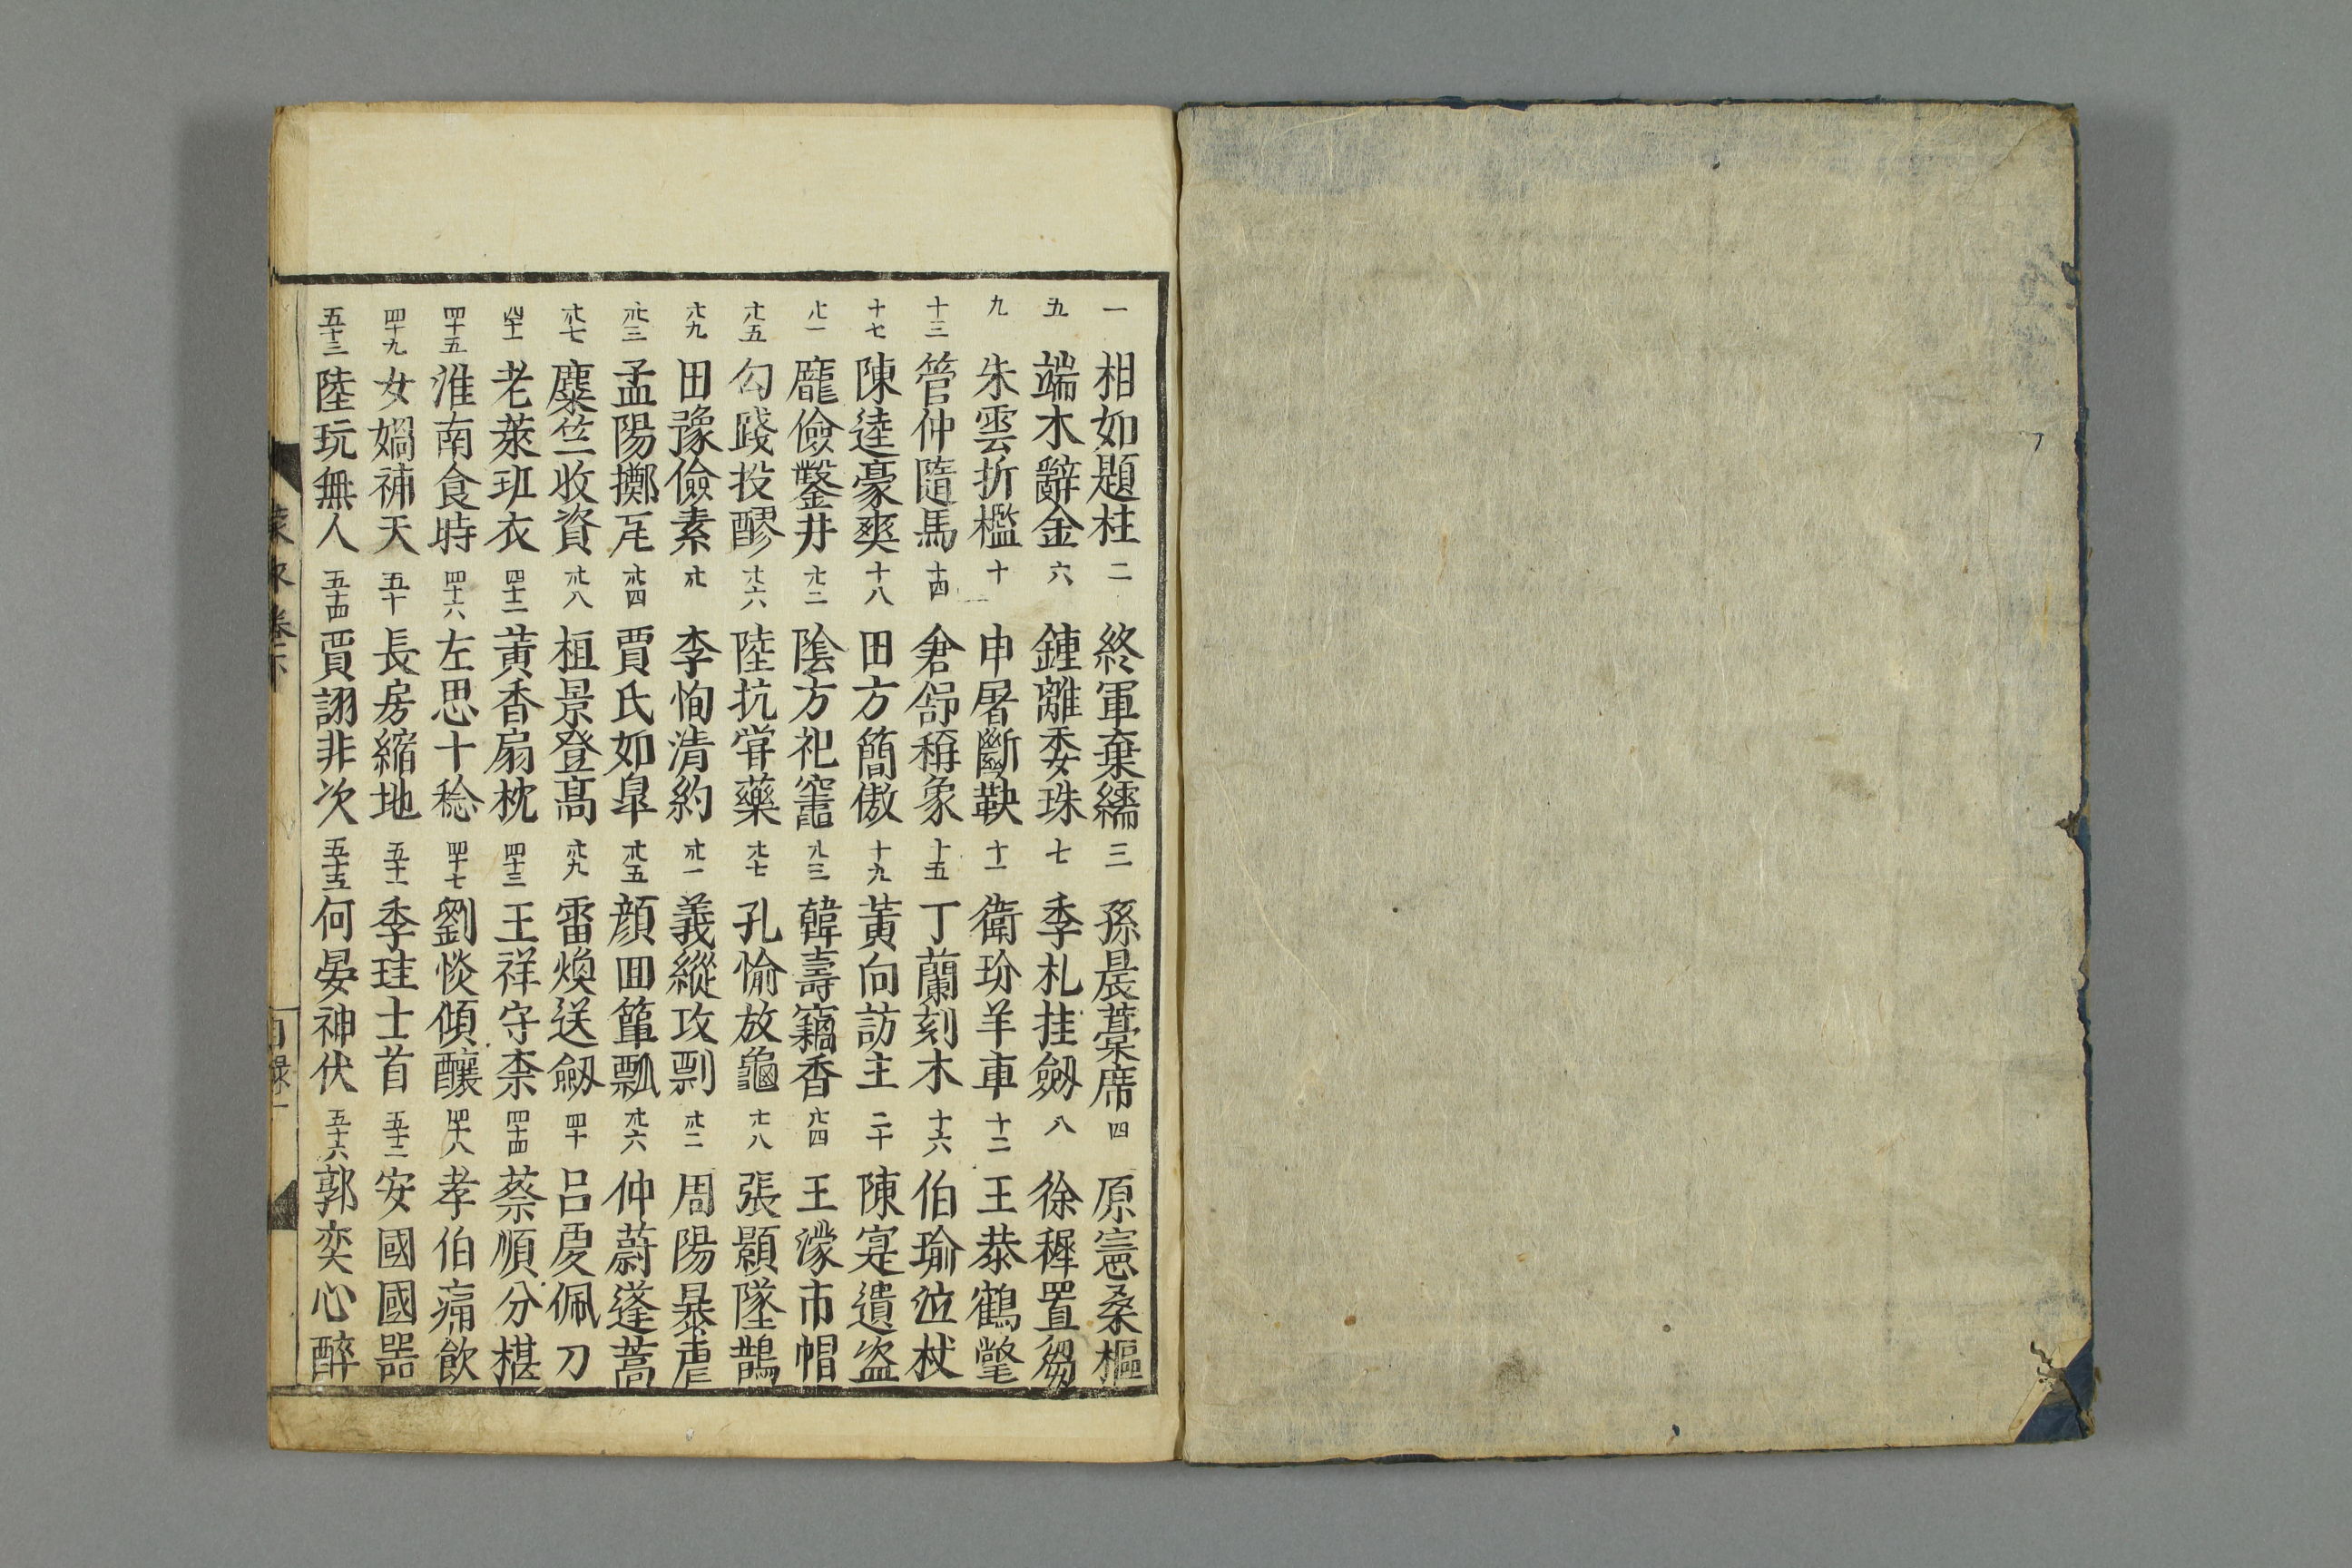 一 相如題柱 二 終軍棄繻 三 孫晨藁席 四 原憲桑樞
五 端木辭金 六 鍾離委珠 七 季札挂劒 八 徐穉置芻
九 朱雲折檻 十 申屠斷鞅 十一 衛玠羊車 十二 王恭鶴氅
十三 管仲隨馬 十四 倉舒稱象 十五 丁蘭刻木 十六 伯瑜泣杖
十七 陳逵豪爽 十八 田方簡傲 十九 黃向訪主 二十 陳寔遺盗
廿一 龐儉鑿井 廿二 陰方祀竈 廿三 韓壽竊香 廿四 王濛市帽
廿五 勾踐投醪 廿六 陸抗甞藥 廿七 孔愉放龜 廿八 張顥墜鵲
廿九 田豫儉素 卅 李恂清約 卅一 義縱攻剽 卅二 周陽暴虐
卅三 孟陽擲瓦 卅四 賈氏如皐 卅五 顔回簞瓢 卅六 仲蔚蓬蒿
卅七 麋竺收資 卅八 桓景登高 卅九 雷煥送劒 四十 呂虔佩刀
四十一 老萊班衣 四十二 黃香扇枕 四十三 王祥守柰 四十四 蔡順分椹
四十五 淮南食時 四十六 左思十稔 四十七 劉惔傾釀 四十八 孝伯痛飲
四十九 女媧補天 五十 長房縮地 五十一 季珪士首 五十二 安國國器
五十三 陸玩無人 五十四 賈詡非次 五十五 何晏神伏 五十六 郭奕心醉
蒙求卷下 目錄一